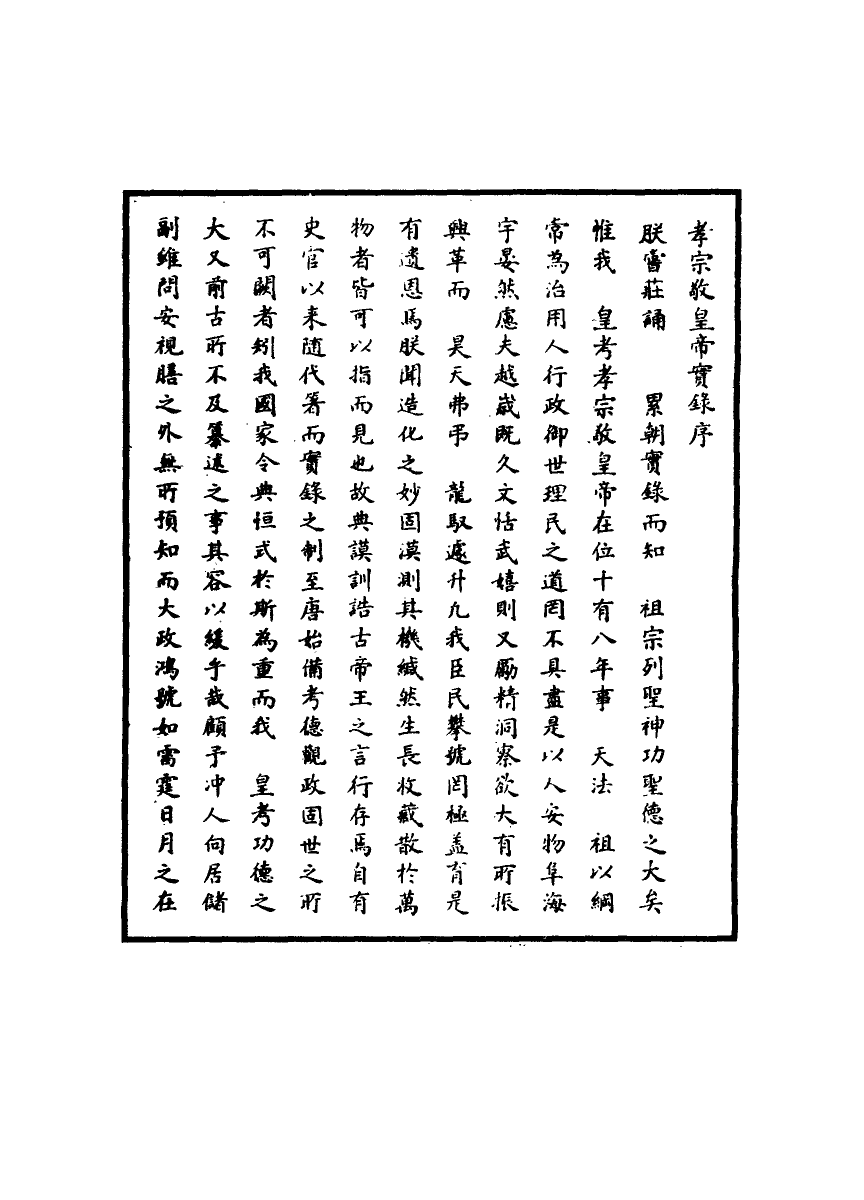 孝宗敬皇帝實錄序
朕嘗莊誦　累朝實錄而知　祖宗列聖神功聖德之大矣
惟我　皇考孝宗敬皇帝在位十有八年事　天法　祖以綱
常為治用人行政御世理民之道罔不具盡是以人安物阜海
宇晏然慮夫越歲既久文恬武嬉則又勵精洞察欲大有所振
興革而　昊天弗弔　龍馭遽升凡我臣民攀號罔極蓋育是
有遺恩焉朕聞造化之妙固漠測其機緘然生長收藏散於萬
物者皆可以指而見也故典謨訓誥古帝王之言行存焉自有
史官以来随代著而實錄之制至唐始備考德觀政固世之所
不可闕者矧我國家令典恒式於斯為重而我　皇考功德之
大又前古所不及纂述之事其容以緩乎哉顧予冲人向居儲
副維問安視膳之外無所預知而大政鴻號如雷霆日月之在